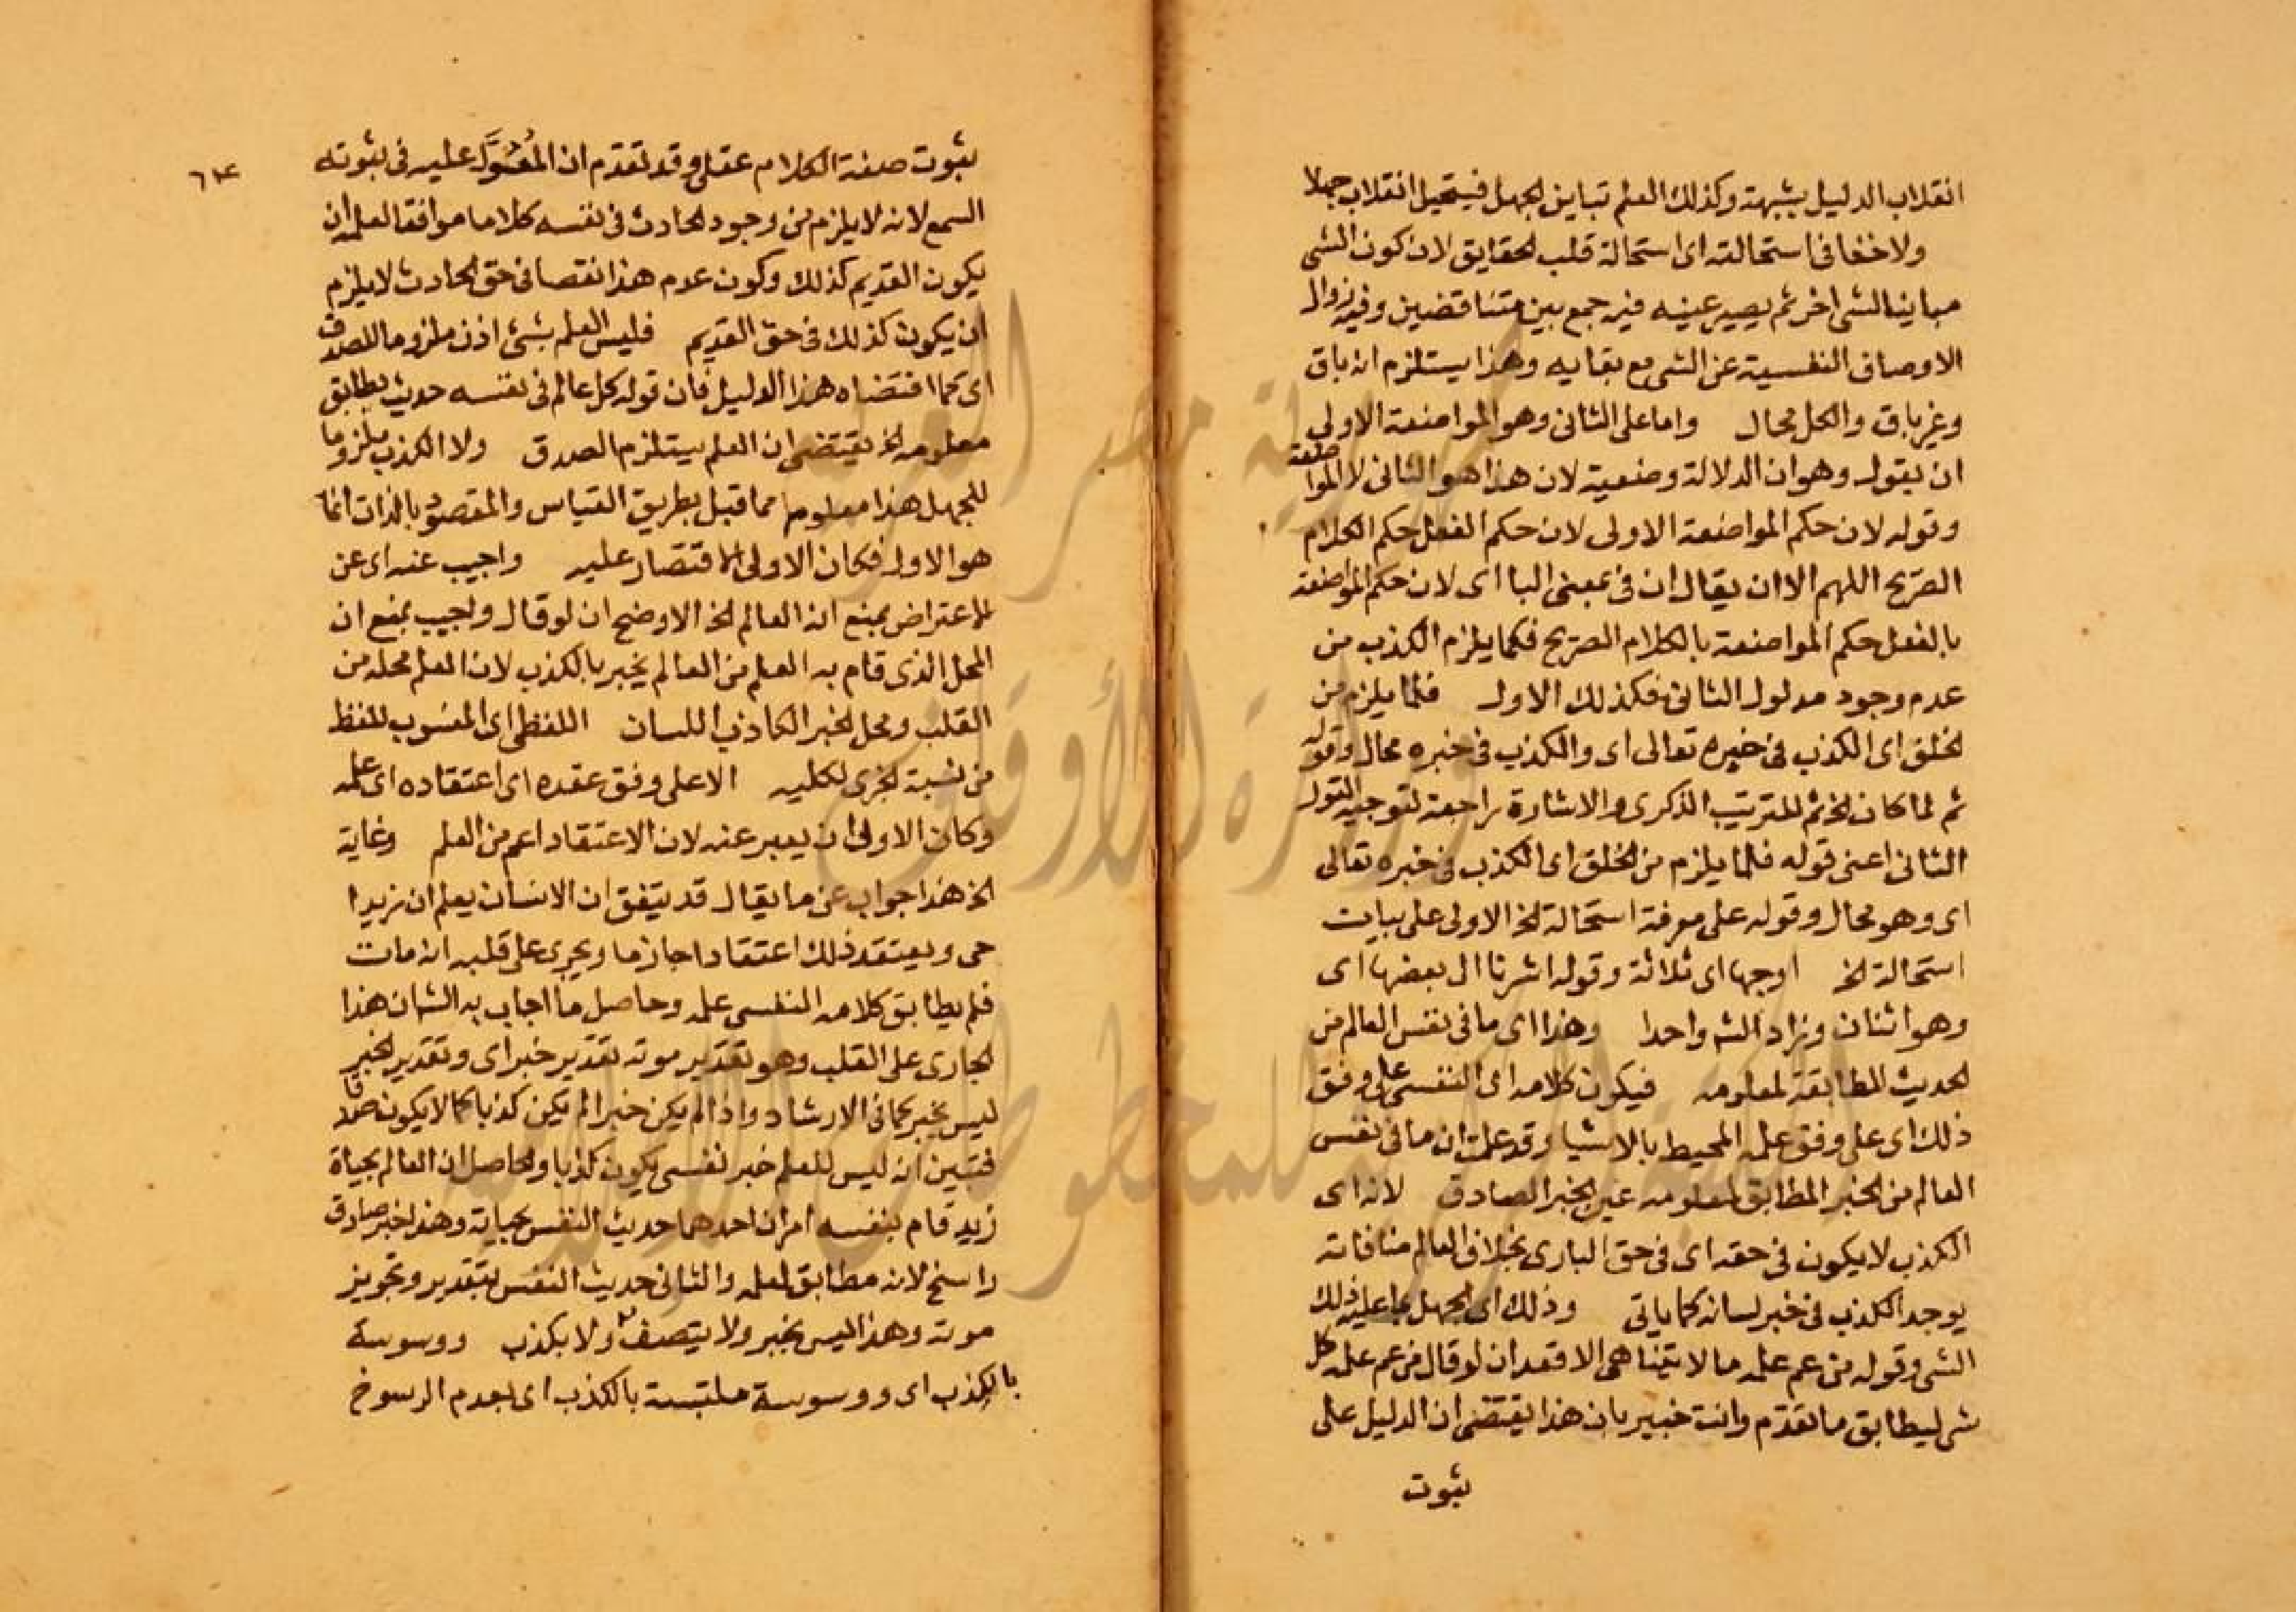 انقلاب الدليل بشبهة وكذلك العلم تباين الجهل فيستحيل انقلاب جهلا
ولا خفا فى استحالته اى استحالة قلب الحقايق لان كون الشى
مباينا لشى اخر ثم يصير عينه فيه جمع بين متناقضين وفيه زوال
الاوصاف النفسية عن الشى مع بقايه وهذا يستلزم انه باق
وغير باق والكل محال واما على الثانى وهو المواضعة الاولى
ان يقول وهو ان الدلالة وضعية لان هذا هو الثانى لا المواضعة
وقوله لان حكم المواضعة الاولى لان حكم الفعل حكم الكلام
الصريح اللهم الا ان يقال ان فى بمعنى البا اى لان حكم المواضعة
بالفعل حكم المواضعة بالكلام الصريح فكما يلزم الكذب من
عدم وجود مدلول الثانى فكذلك الاول فلما يلزم من
الخلق اى الكذب فى خبره تعالى اى والكذب فى خبره محال وقوله
ثم لما كان الخ ثم للترتيب الذكرى والاشارة راجعة لتوجيه القول
الثانى اعنى قوله فلما يلزم من الخلق اى الكذب فى خبره تعالى
اى وهو محال وقوله على معرفة استحالة الخ الاولى على بيات
استحالة الخ اوجها اى ثلاثة وقوله اشرنا الى بعضها اى
وهو اثنان وزاد الشـ واحدا وهذا اى ما فى نفس العالم من
الحديث المطابقة لمعلومه فيكون كلامه اى النفسى على وفق
ذلك اى على وفق علمه المحيط بالاشيا وقد علمت ان ما فى نفس
العالم من الخبر المطابق لمعلومه عين الخبر الصادق لانه اى
الكذب لا يكون فى حقه اى فى حق البارى بخلاف العالم منا فانه
يوجد الكذب فى خبر لسانه كما ياتى وذلك اى الجهل بما عليه ذلك
الشى وقوله من عم علمه ما لا يتناهى الا قعد ان لو قال من عم علمه كل
شى ليطابق ما تقدم وانت خبير بان هذا يقتضى ان الدليل على
ثبوت
٦٤
ثبوت صفة الكلام عقلى وقد تقدم ان المُعَوَّل عليه فى ثبوته
السمع لانه لا يلزم من وجود الحادث فى نفسه كلاما موافقا لعلمه ان
يكون القديم كذلك وكون عدم هذا نقصا فى حق الحادث لا يلزم
ان يكون كذلك فى حق القديم فليس العلم بشئ اذن ملزوما للصدق
اى كما اقتضاه هذا الدليل فان قوله كل عالم فى نفسه حديث يطابق
معلومه الخ يقتضى ان العلم يستلزم الصدق ولا الكذب ملزوما
للجهل هذا معلوم مما قبل بطريق القياس والمقصود بالذات انما
هو الاول فكان الاولى الاقتصار عليه واجيب عنه اى عن
الاعتراض بمنع ان العالم الخ الاوضح ان لو قال واجيب بمنع ان
المحل الذى قام به العلم من العالم يخبر بالكذب لان العلم محله من
القلب ومحل الخبر الكاذب اللسان اللفظى اى المنسوب للفظ
من نسبة الجزى لكليه الا على وفق عقده اى اعتقاده اى علمه
وكان الاولى ان يعبر عنه لان الاعتقاد اعم من العلم وغاية
الخ هذا جواب عن ما يقال قد يتفق ان الانسان يعلم ان زيدا
حى ويعتقد ذلك اعتقادا جازما ويجرى على قلبه انه مات
فلم يطابق كلامه النفسى علمه وحاصل ما اجاب به الشـ ان هذا
الجارى على القلب وهو تقدير موته تقدير خبر اى وتقدير الخبر
ليس بخبر كما فى الارشاد واذا لم يكن خبرا لم يكن كذبا كما لا يكون صدقا
فتبين ان ليس للعلم خبر نفسى يكون كذبا والحاصل ان العالم بحياة
زيد قام بنفسه امران احدهما حديث النفس بحياته وهذا خبر صادق
راسخ لانه مطابق لعلمه والثانى حديث النفس بتقدير وتجويز
موته وهذا ليس بخبر ولا يتصف ولا بكذب ووسوسة
بالكذب اى ووسوسة ملتبسة بالكذب اى لعدم الرسوخ